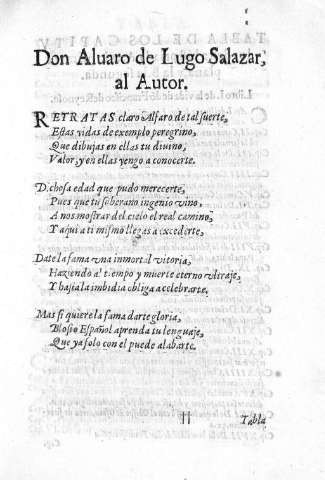 Don Aluaro de Lugo Salazar,
al Autor.
RETRATAS claro Alfaro de tal suerte,
Estas vidas de exemplo peregrino,
Que dibujas en ellas tu diuino,
Valor, y en ellas vengo a conocerte.
Dichosa edad que pudo merecerte,
Pues que tu soberano ingenio vino,
A nos mostrar del cielo el real camino,
Y aqui a ti mismo llegas a excederte,
Date la fama vna inmortal vitoria,
Haziendo al tiempo y muerte eterno vltraje,
Y hasta la imbidia obliga a celebrarte.
Mas si quiere la fama darte gloria,
Blosio Español aprenda tu lenguaje,
Que ya solo con el puede alabarte.
Tabla